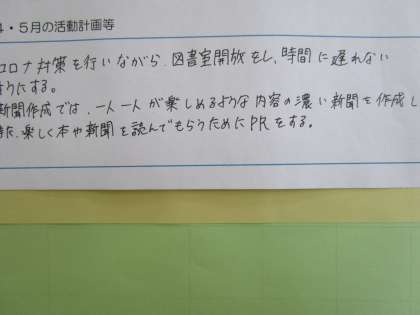 4・5月の活動計画等
コロナ対策を行いながら、図書室開放をし、時間に遅れない
ようにする。
新聞作成では、一人一人が楽しめるような内容の濃い新聞を作成し
また、楽しく本や新聞を読んでもらうためにPRをする。